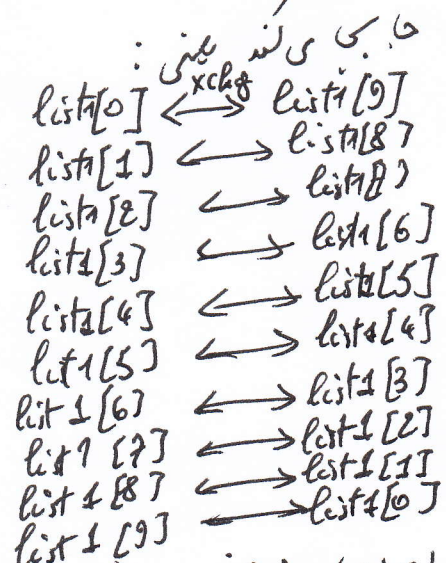 جا بجا می کند یعنی :
list1[0] <-xchg-> list1[9]
list1[1] <--> list1[8]
list1[2] <--> list1[7]
list1[3] <--> list1[6]
list1[4] <--> list1[5]
list1[5] <--> list1[4]
list1[6] <--> list1[3]
list1[7] <--> list1[2]
list1[8] <--> list1[1]
list1[9] <--> list1[0]